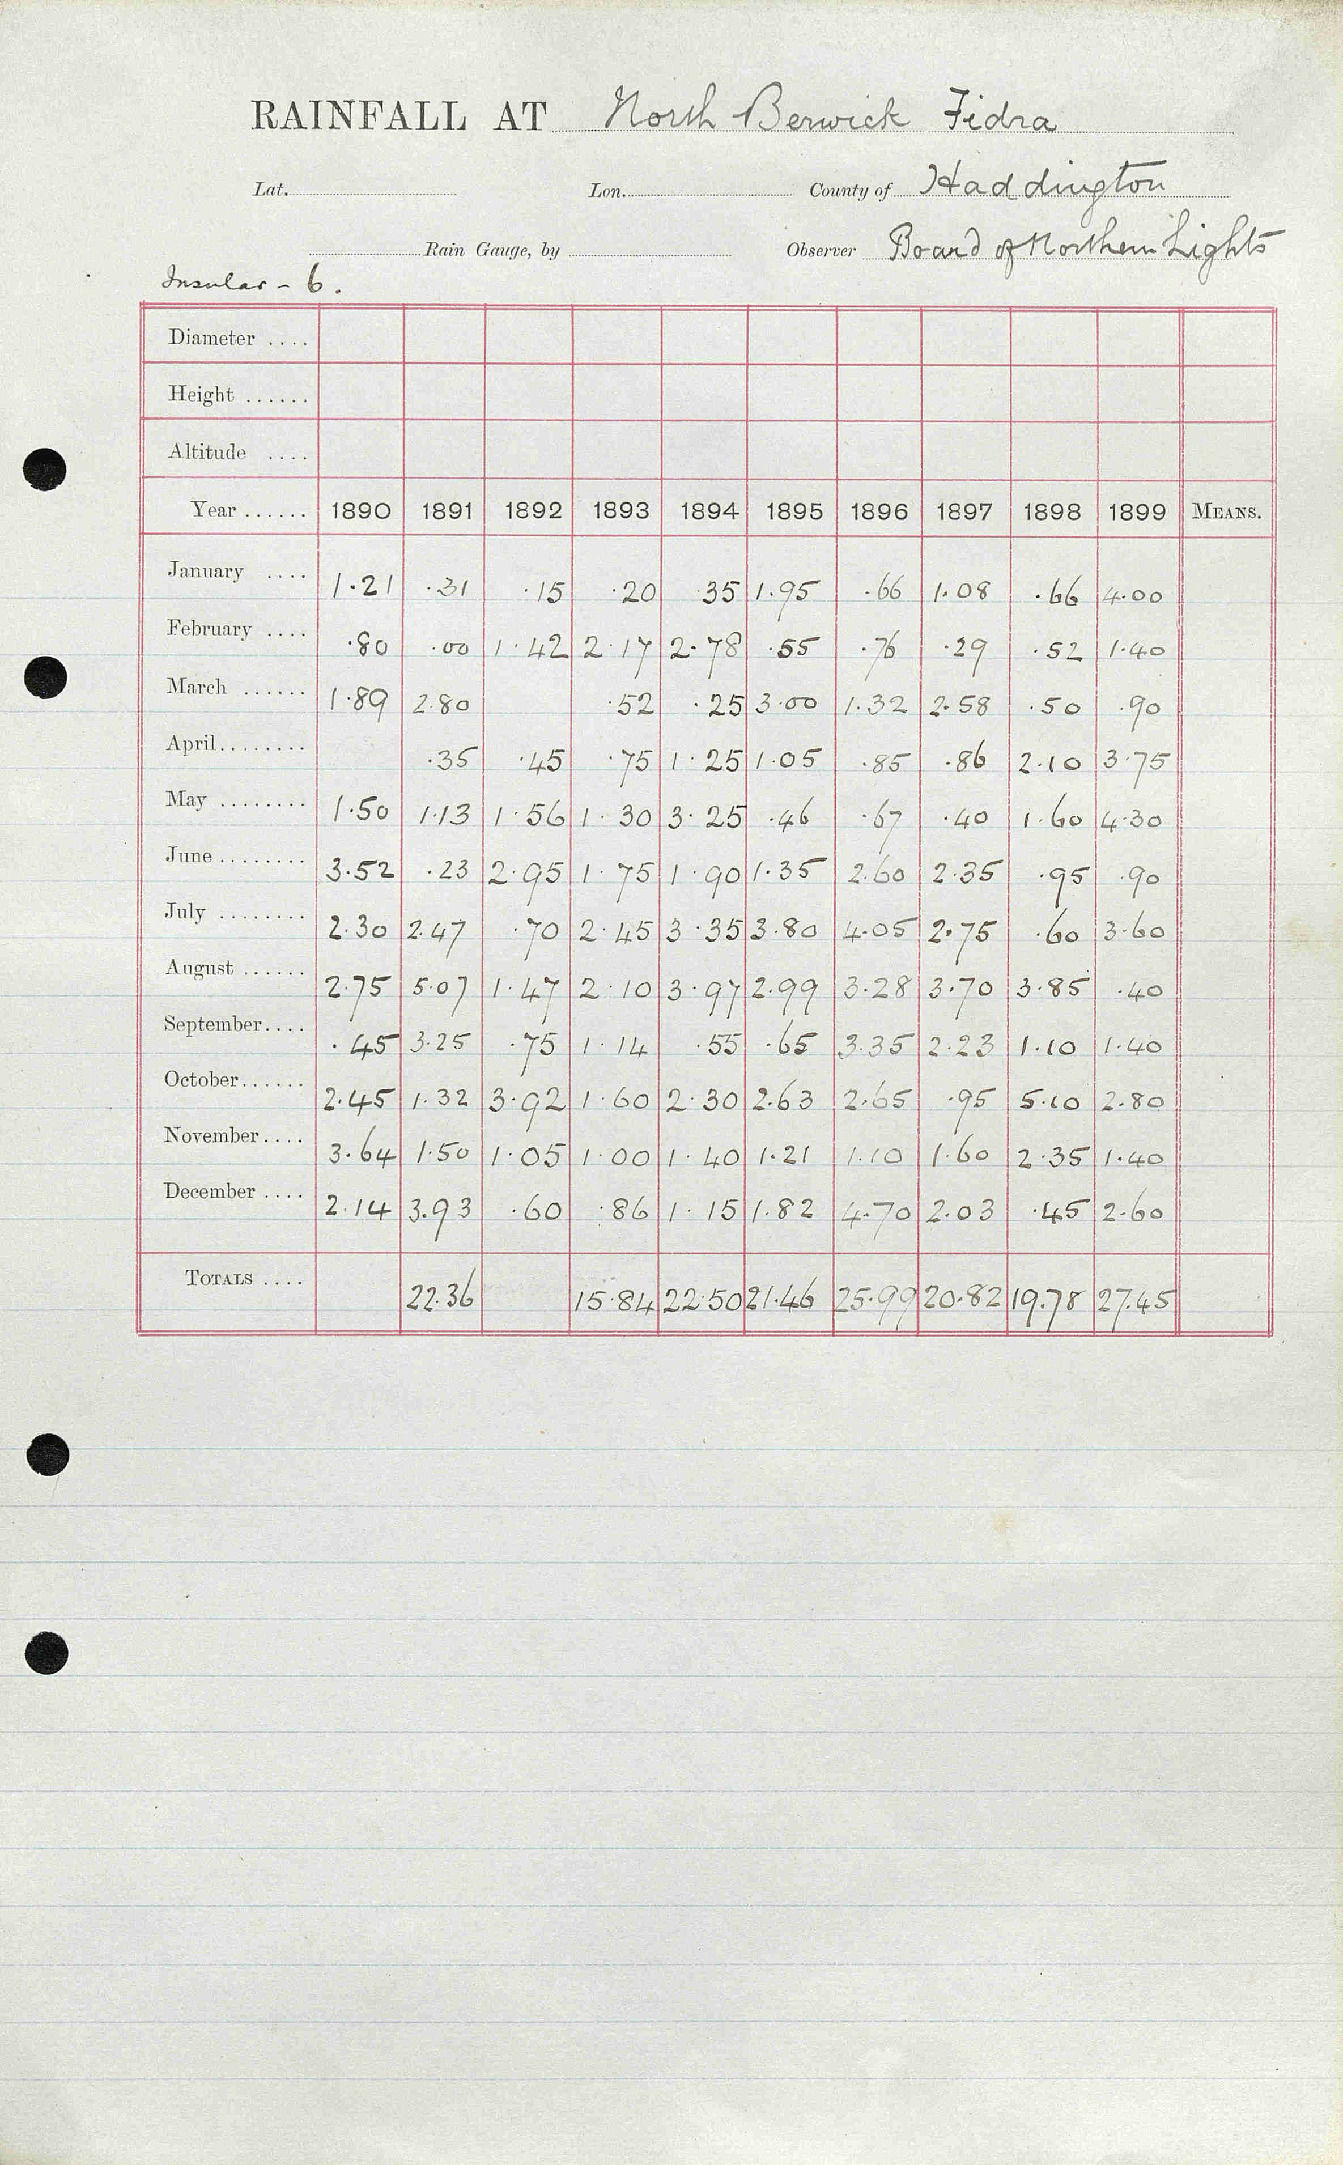 RAINFALL AT North Berwick Fidra
Lat. Lon. County of Haddington
Rain Gauge, by Observer Board of Northern Lights
Insular - 6.
Diameter ....
Height ......
Altitude ....
Year ...... 1890 1891 1892 1893 1894 1895 1896 1897 1898 1899 MEANS.
January .... 1.21 .31 .15 .20 .35 1.95 .66 1.08 .66 4.00
February .... .80 .00 1.42 2.17 2.78 .55 .76 .29 .52 1.40
March ...... 1.89 2.80 .52 .25 3.00 1.32 2.58 .50 .90
April........ .35 .45 .75 1.25 1.05 .85 .86 2.10 3.75
May ........ 1.50 1.13 1.56 1.30 3.25 .46 .67 .40 1.60 4.30
June ........ 3.52 .23 2.95 1.75 1.90 1.35 2.60 2.35 .95 .90
July ........ 2.30 2.47 .70 2.45 3.35 3.80 4.05 2.75 .60 3.60
August ...... 2.75 5.07 1.47 2.10 3.97 2.99 3.28 3.70 3.85 .40
September.... .45 3.25 .75 1.14 .55 .65 3.35 2.23 1.10 1.40
October...... 2.45 1.32 3.92 1.60 2.30 2.63 2.65 .95 5.10 2.80
November.... 3.64 1.50 1.05 1.00 1.40 1.21 1.10 1.60 2.35 1.40
December .... 2.14 3.93 .60 .86 1.15 1.82 4.70 2.03 .45 2.60
TOTALS .... 22.36 15.84 22.50 21.46 25.99 20.82 19.78 27.45